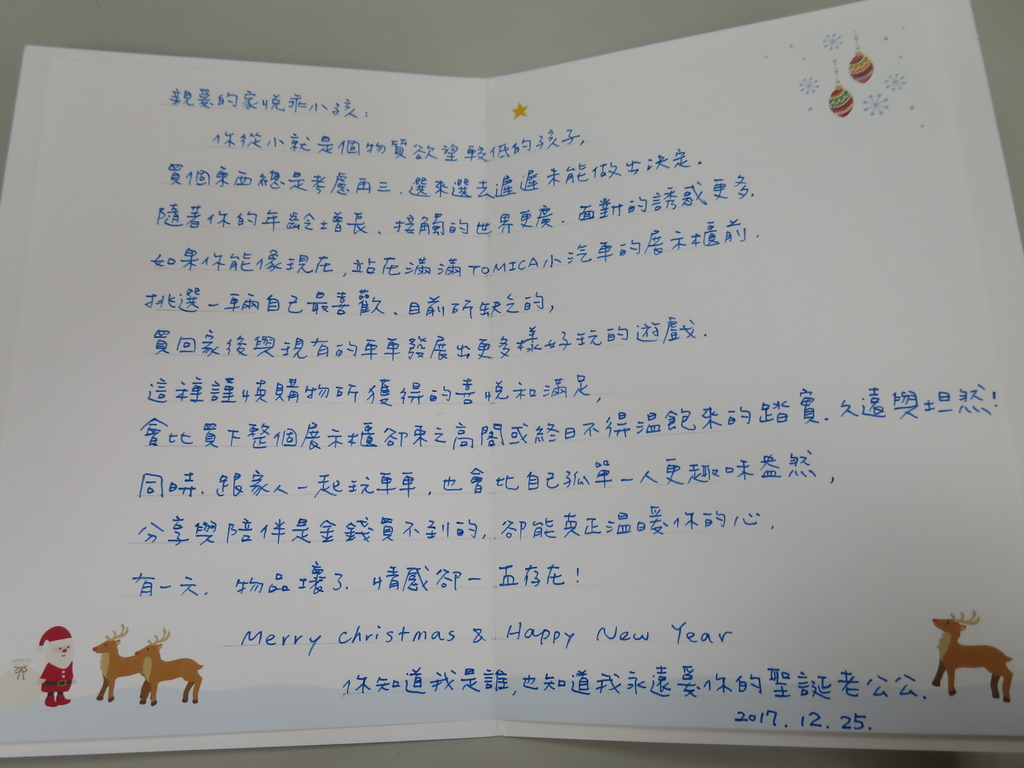 親愛的家悅乖小孩：
你從小就是個物質欲望較低的孩子,
買個東西總是考慮再三、選來選去遲遲未能做出決定.
隨著你的年齡增長、接觸的世界更廣、面對的誘惑更多.
如果你能像現在,站在滿滿TOMICA小汽車的展示櫃前.
挑選一輛自己最喜歡、目前所缺乏的,
買回家後與現有的車車發展出更多樣好玩的遊戲.
這種謹慎購物所獲得的喜悅和滿足,
會比買下整個展示櫃卻束之高閣或終日不得溫飽來的踏實、久遠與坦然!
同時、跟家人一起玩車車,也會比自己孤單一人更趣味盎然,
分享與陪伴是金錢買不到的,卻能真正溫暖你的心.
有一天、物品壞了、情感卻一直存在!
Merry christmas & Happy New Year
你知道我是誰,也知道我永遠愛你的聖誕老公公.
2017.12.25.